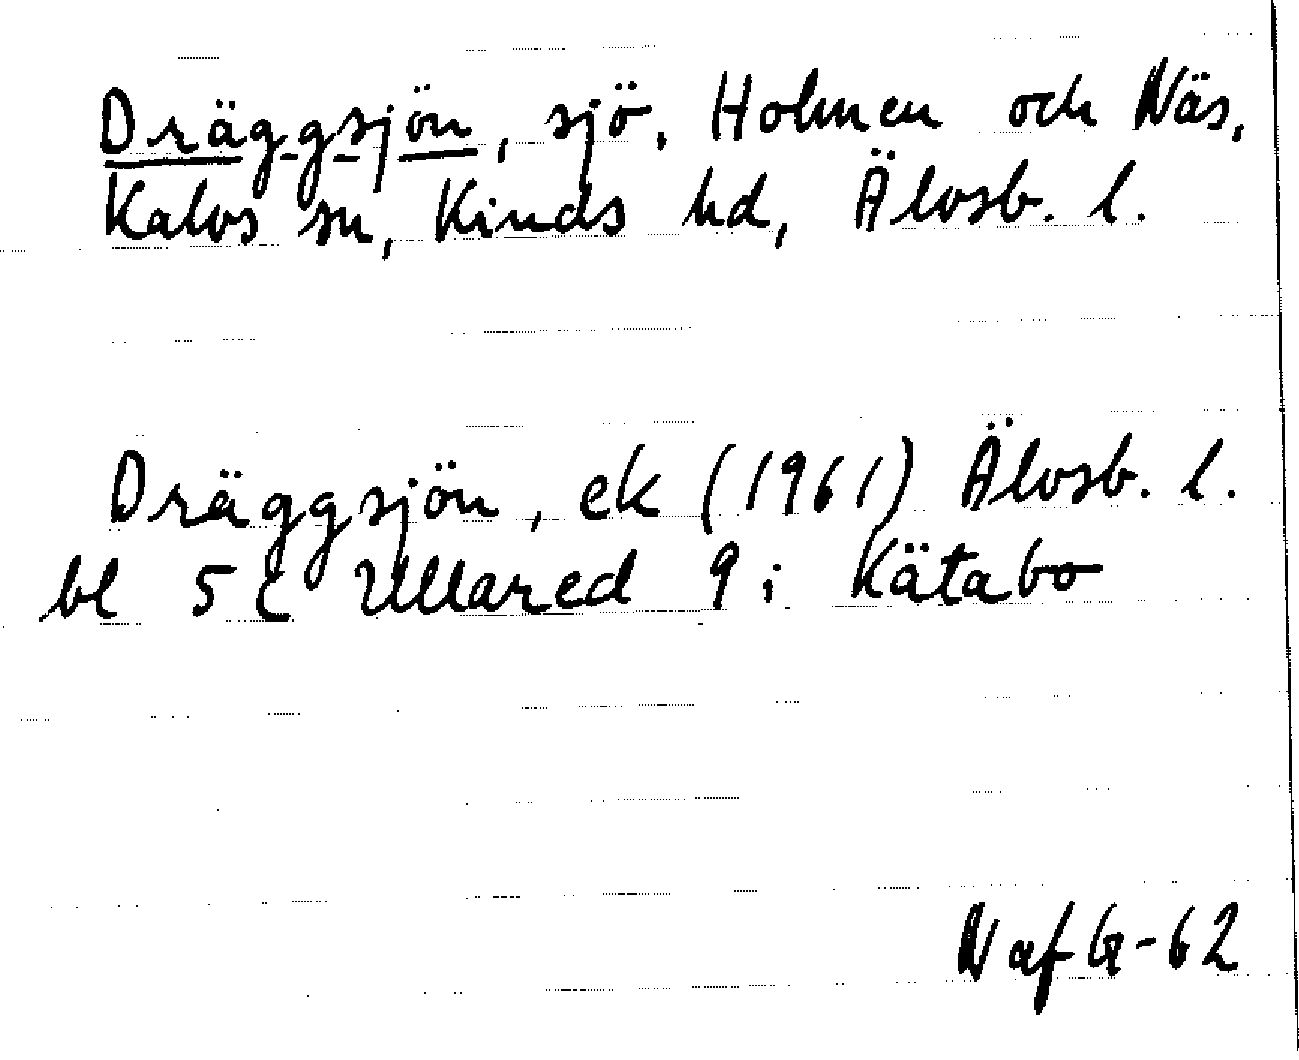 Dräggsjön, sjö, Holmen och Näs,
Kalvs sn, Kinds hd, Älvsb. l.
Dräggsjön, ek (1961) Älvsb. l.
bl 5 C Ullared 9 i Kätabo
N af G-62